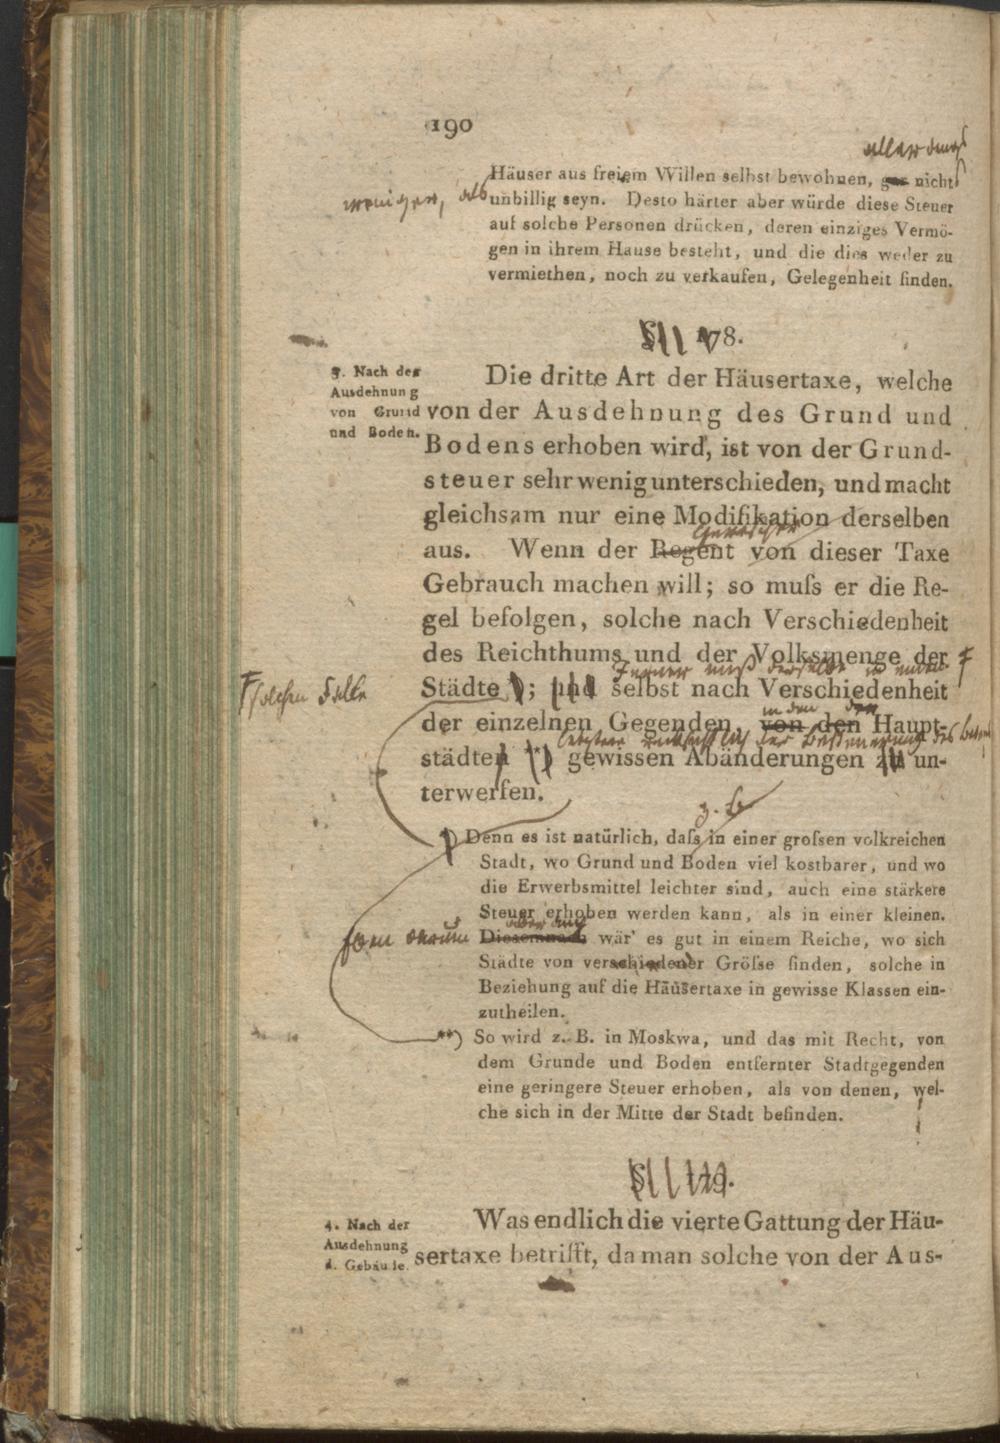 190
allerdings
Häuser aus freiem Willen selbst bewohnen, gar nicht
weniger, als
unbillig seyn. Desto härter aber würde diese Steuer
auf solche Personen drücken, deren einziges Vermö-
gen in ihrem Hause besteht, und die dies weder zu
vermiethen, noch zu verkaufen, Gelegenheit finden.
§ 178.
3. Nach der
Ausdehnung
von Grund
und Boden.
Die dritte Art der Häusertaxe, welche
von der Ausdehnung des Grund und
Bodens erhoben wird, ist von der Grund-
steuer sehr wenig unterschieden, und macht
gleichsam nur eine Modifikation derselben
aus. Wenn der Regent von dieser Taxe
Gebrauch machen will; so muſs er die Re-
gel befolgen, solche nach Verschiedenheit
des Reichthums und der Volksmenge der
Ferner muß derselbe in einem
solchen Falle
Städte *); und selbst nach Verschiedenheit
in den den
der einzelnen Gegenden, von den Haupt-
letztere rücksichtlich der Besteuerung des
städten **) gewissen Abänderungen zu un-
terwerfen.
z. B.
*) Denn es ist natürlich, daſs in einer groſsen volkreichen
Stadt, wo Grund und Boden viel kostbarer, und wo
die Erwerbsmittel leichter sind, auch eine stärkere
Steuer erhoben werden kann, als in einer kleinen.
eben darum
Diesemnach wär' es gut in einem Reiche, wo sich
Städte von verschiedener Gröſse finden, solche in
Beziehung auf die Häusertaxe in gewisse Klassen ein-
zutheilen.
**) So wird z. B. in Moskwa, und das mit Recht, von
dem Grunde und Boden entfernter Stadtgegenden
eine geringere Steuer erhoben, als von denen, wel-
che sich in der Mitte der Stadt befinden.
§ 179.
4. Nach der
Ausdehnung
d. Gebäude.
Was endlich die vierte Gattung der Häu-
sertaxe betrifft, da man solche von der Aus-